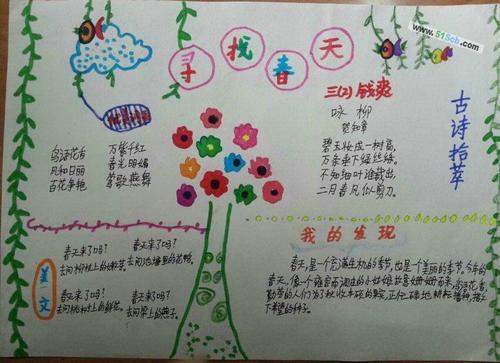 www.51Scb.com
寻找春天
三(2) 钱爽
咏柳
贺知章
碧玉妆成一树高,
万条垂下绿丝绦。
不知细叶谁裁出,
二月春风似剪刀。
古诗拾萃
鸟语花香 万紫千红
风和日丽 春光明媚
百花争艳 莺歌燕舞
美文
春天来了吗?
去问柳树上的嫩芽。
春天来了吗?
去问地里的
春天来了吗?
去问桃树上的鲜花。
春天来了吗?
去问梁上的燕子。
我的发现
春天,是一个充满生机的季节,也是一个美丽的季节,今年的
春天,像一个
勤劳的人们为了秋收
下希望的种子。